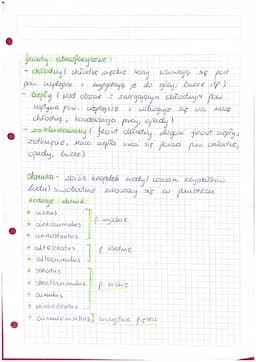 fronty atmosferyczne:
- chłodny ( chłodne, ciężkie masy wsuwają się pod
pow. cieplejsze i wypychają je do góry, burze itp )
- ciepły ( nad obszar z zalegającym chłodnym pow.
napływa pow. cieplejsze i wślizguje się na masę
chłodną, kondensacja pary, opady )
- zokludowany ( front chłodny dogania front ciepły,
masa ciepła unosi się ponad pow. chłodne,
opady, burze)
chmura - zbiór kropelek wody ( czasem kryształków
lodu ) swobodnie unoszący się w powietrzu
rodzaje chmur:
+ cirrus
+ cirrocumulus
+ cirrostratus
p. wysokie
+ altostratus
+ altocumulus
p. średnie
+ stratus
+ stratocumulus
+ cumulus
+ nimbostratus
p. niskie
+ cumulonimbus wszystkie piętra